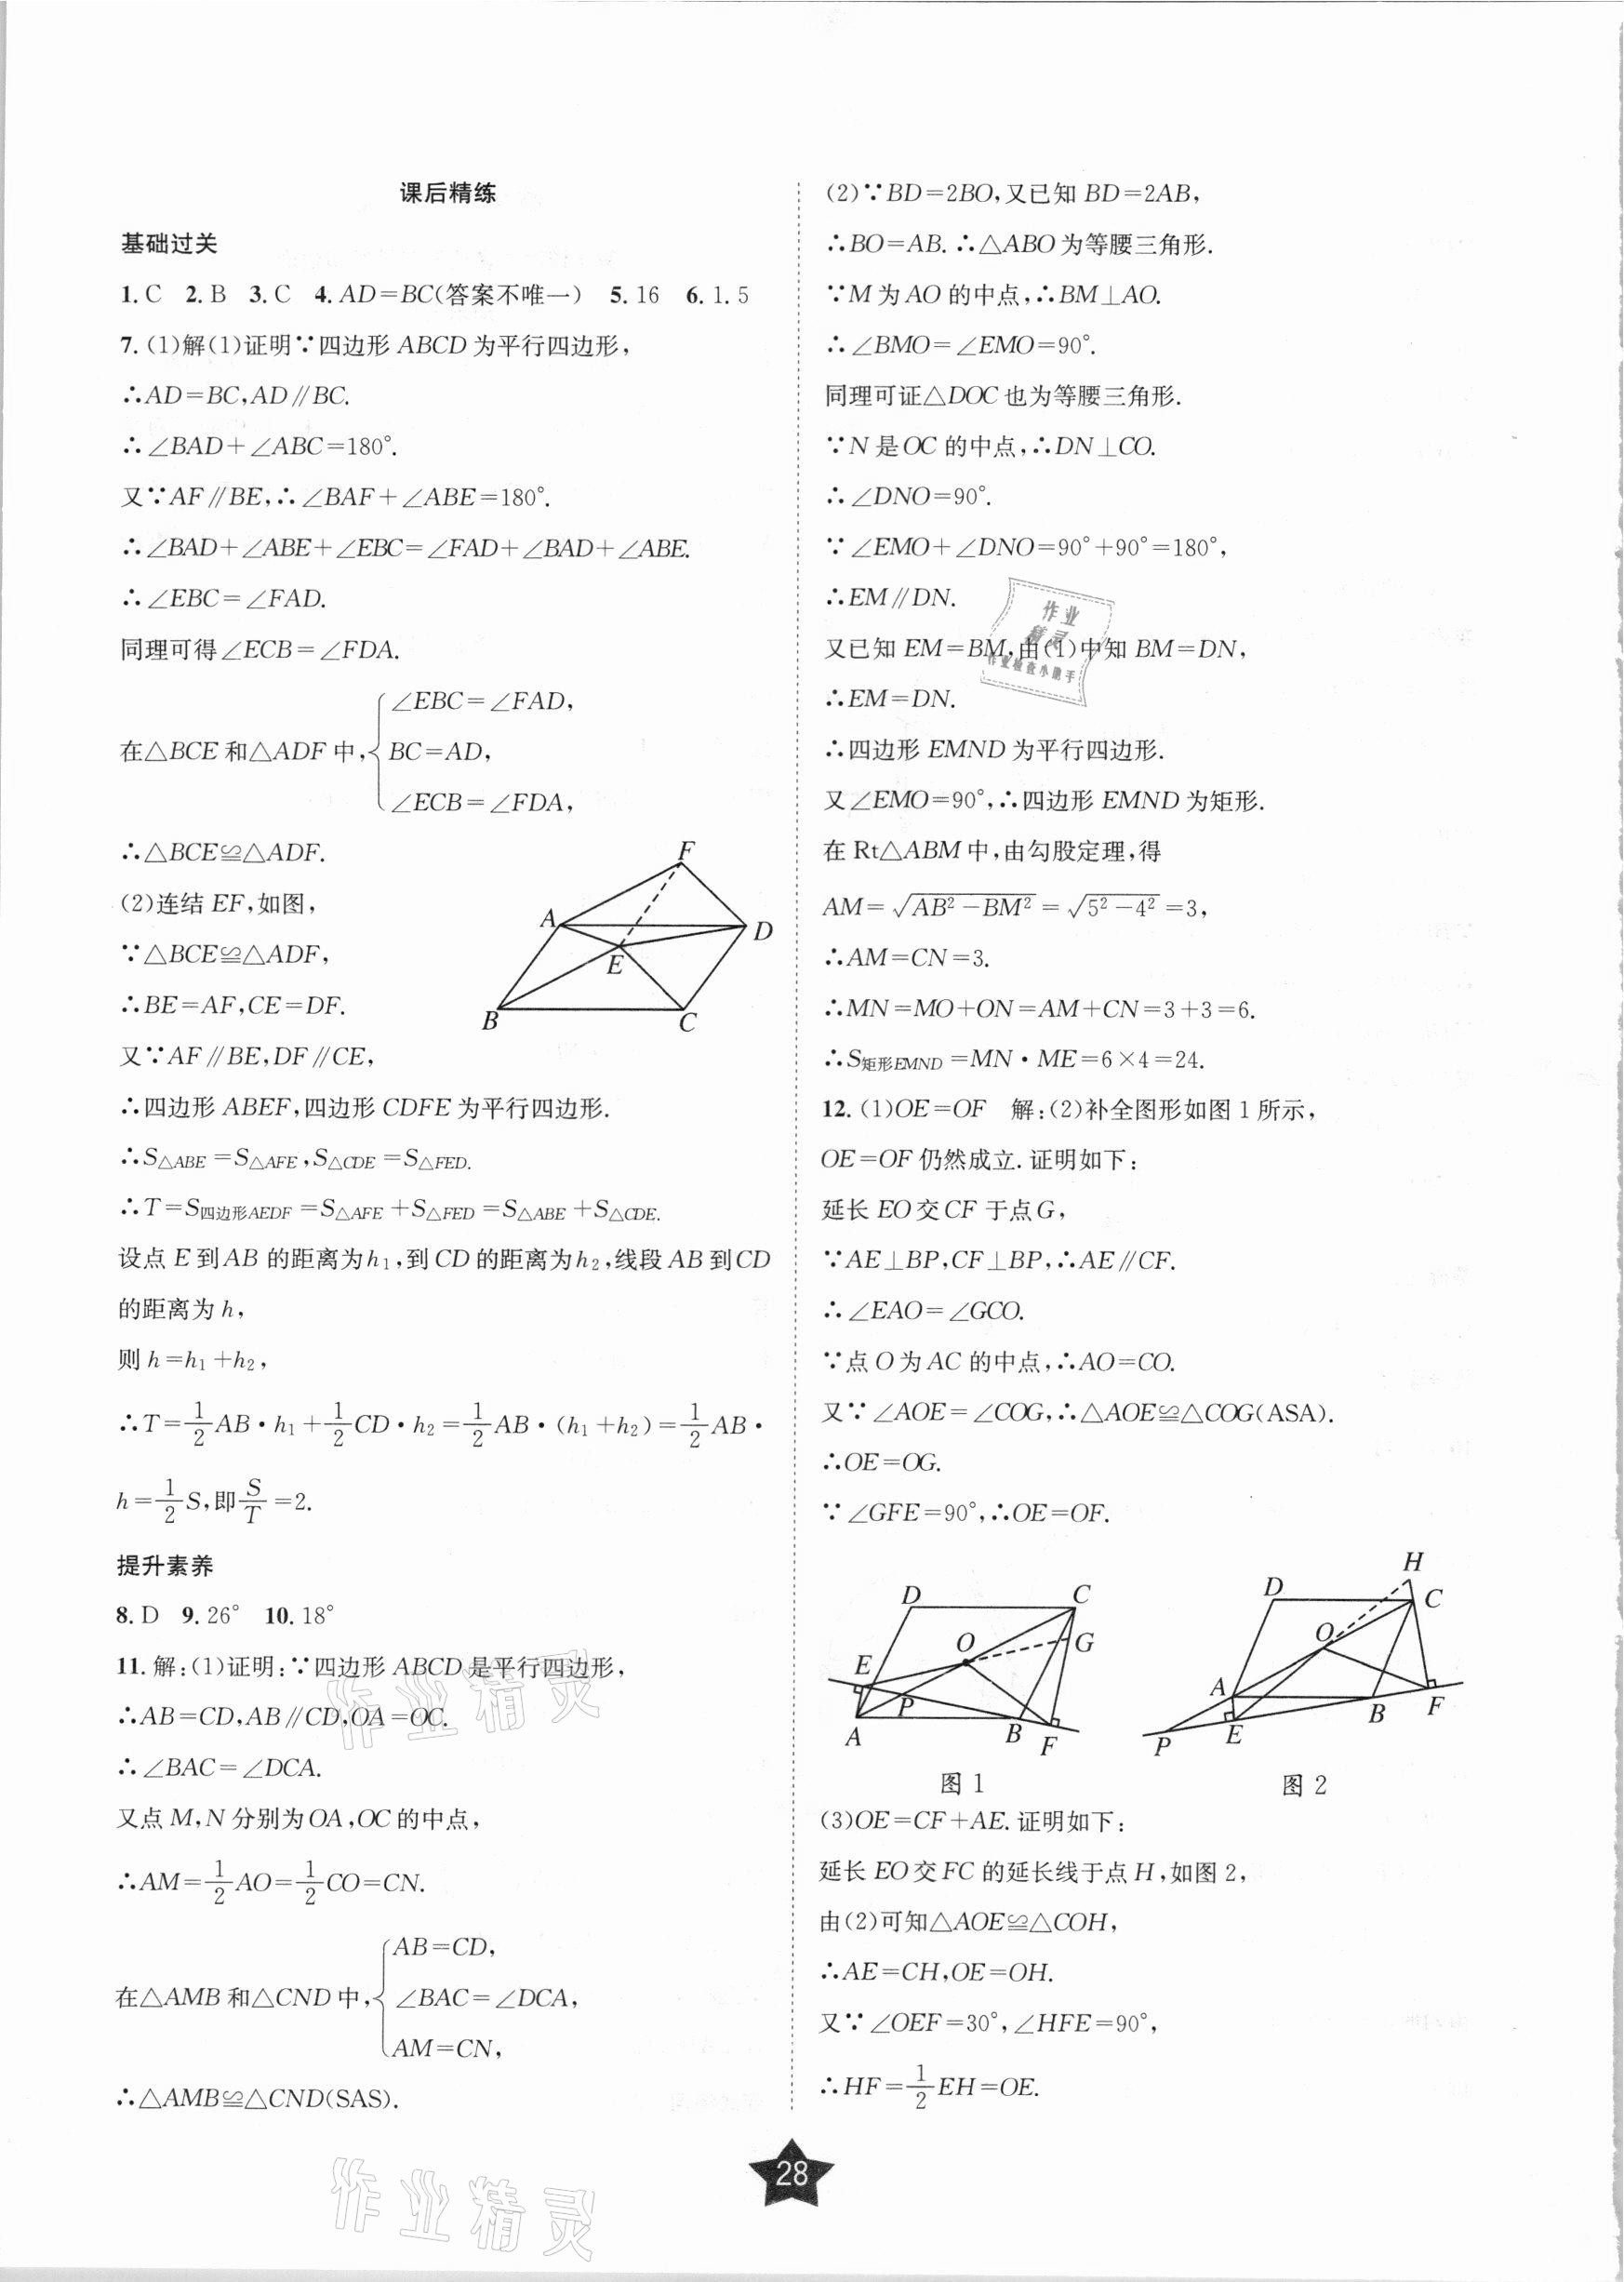 课后精练
基础过关
1. C 2. B 3. C 4. AD=BC(答案不唯一) 5. 16 6. 1.5
7. (1)解(1)证明∵四边形ABCD为平行四边形，
∴AD=BC,AD∥BC.
∴∠BAD+∠ABC=180°.
又∵AF∥BE,∴∠BAF+∠ABE=180°.
∴∠BAD+∠ABE+∠EBC=∠FAD+∠BAD+∠ABE.
∴∠EBC=∠FAD.
同理可得∠ECB=∠FDA.
∠EBC=∠FAD,
在△BCE和△ADF中,{BC=AD,
∠ECB=∠FDA,
∴△BCE≌△ADF.
(2)连结EF,如图,
∵△BCE≌△ADF,
∴BE=AF,CE=DF.
又∵AF∥BE,DF∥CE,
F
A
D
E
B
C
∴四边形ABEF,四边形CDFE为平行四边形.
∴S△ABE=S△AFE,S△CDE=S△FED.
∴T=S四边形AEDF=S△AFE+S△FED=S△ABE+S△CDE.
设点E到AB的距离为h₁,到CD的距离为h₂,线段AB到CD
的距离为h,
则h=h₁+h₂,
∴T=1/2AB·h₁+1/2CD·h₂=1/2AB·(h₁+h₂)=1/2AB·
h=1/2S,即S/T=2.
提升素养
8. D 9. 26° 10. 18°
11. 解:(1)证明:∵四边形ABCD是平行四边形,
∴AB=CD,AB∥CD,OA=OC.
∴∠BAC=∠DCA.
又点M,N分别为OA,OC的中点,
∴AM=1/2AO=1/2CO=CN.
AB=CD,
在△AMB和△CND中,{∠BAC=∠DCA,
AM=CN,
∴△AMB≌△CND(SAS).
(2)∵BD=2BO,又已知BD=2AB,
∴BO=AB.∴△ABO为等腰三角形.
∵M为AO的中点,∴BM⊥AO.
∴∠BMO=∠EMO=90°.
同理可证△DOC也为等腰三角形.
∵N是OC的中点,∴DN⊥CO.
∴∠DNO=90°.
∵∠EMO+∠DNO=90°+90°=180°,
∴EM∥DN.
又已知EM=BM,由(1)中知BM=DN,
∴EM=DN.
∴四边形EMND为平行四边形.
又∠EMO=90°,∴四边形EMND为矩形.
在Rt△ABM中,由勾股定理,得
AM=√(AB²-BM²)=√(5²-4²)=3,
∴AM=CN=3.
∴MN=MO+ON=AM+CN=3+3=6.
∴S矩形EMND=MN·ME=6×4=24.
12. (1)OE=OF 解:(2)补全图形如图1所示,
OE=OF仍然成立.证明如下:
延长EO交CF于点G,
∵AE⊥BP,CF⊥BP,∴AE∥CF.
∴∠EAO=∠GCO.
∵点O为AC的中点,∴AO=CO.
又∵∠AOE=∠COG,∴△AOE≌△COG(ASA).
∴OE=OG.
∵∠GFE=90°,∴OE=OF.
D
C
O
G
E
P
A
B
F
图1
H
D
C
O
A
B
F
P
E
图2
(3)OE=CF+AE.证明如下:
延长EO交FC的延长线于点H,如图2,
由(2)可知△AOE≌△COH,
∴AE=CH,OE=OH.
又∵∠OEF=30°,∠HFE=90°,
∴HF=1/2EH=OE.
28
作业
精灵
作业检查小助手
作业精灵
作业精灵